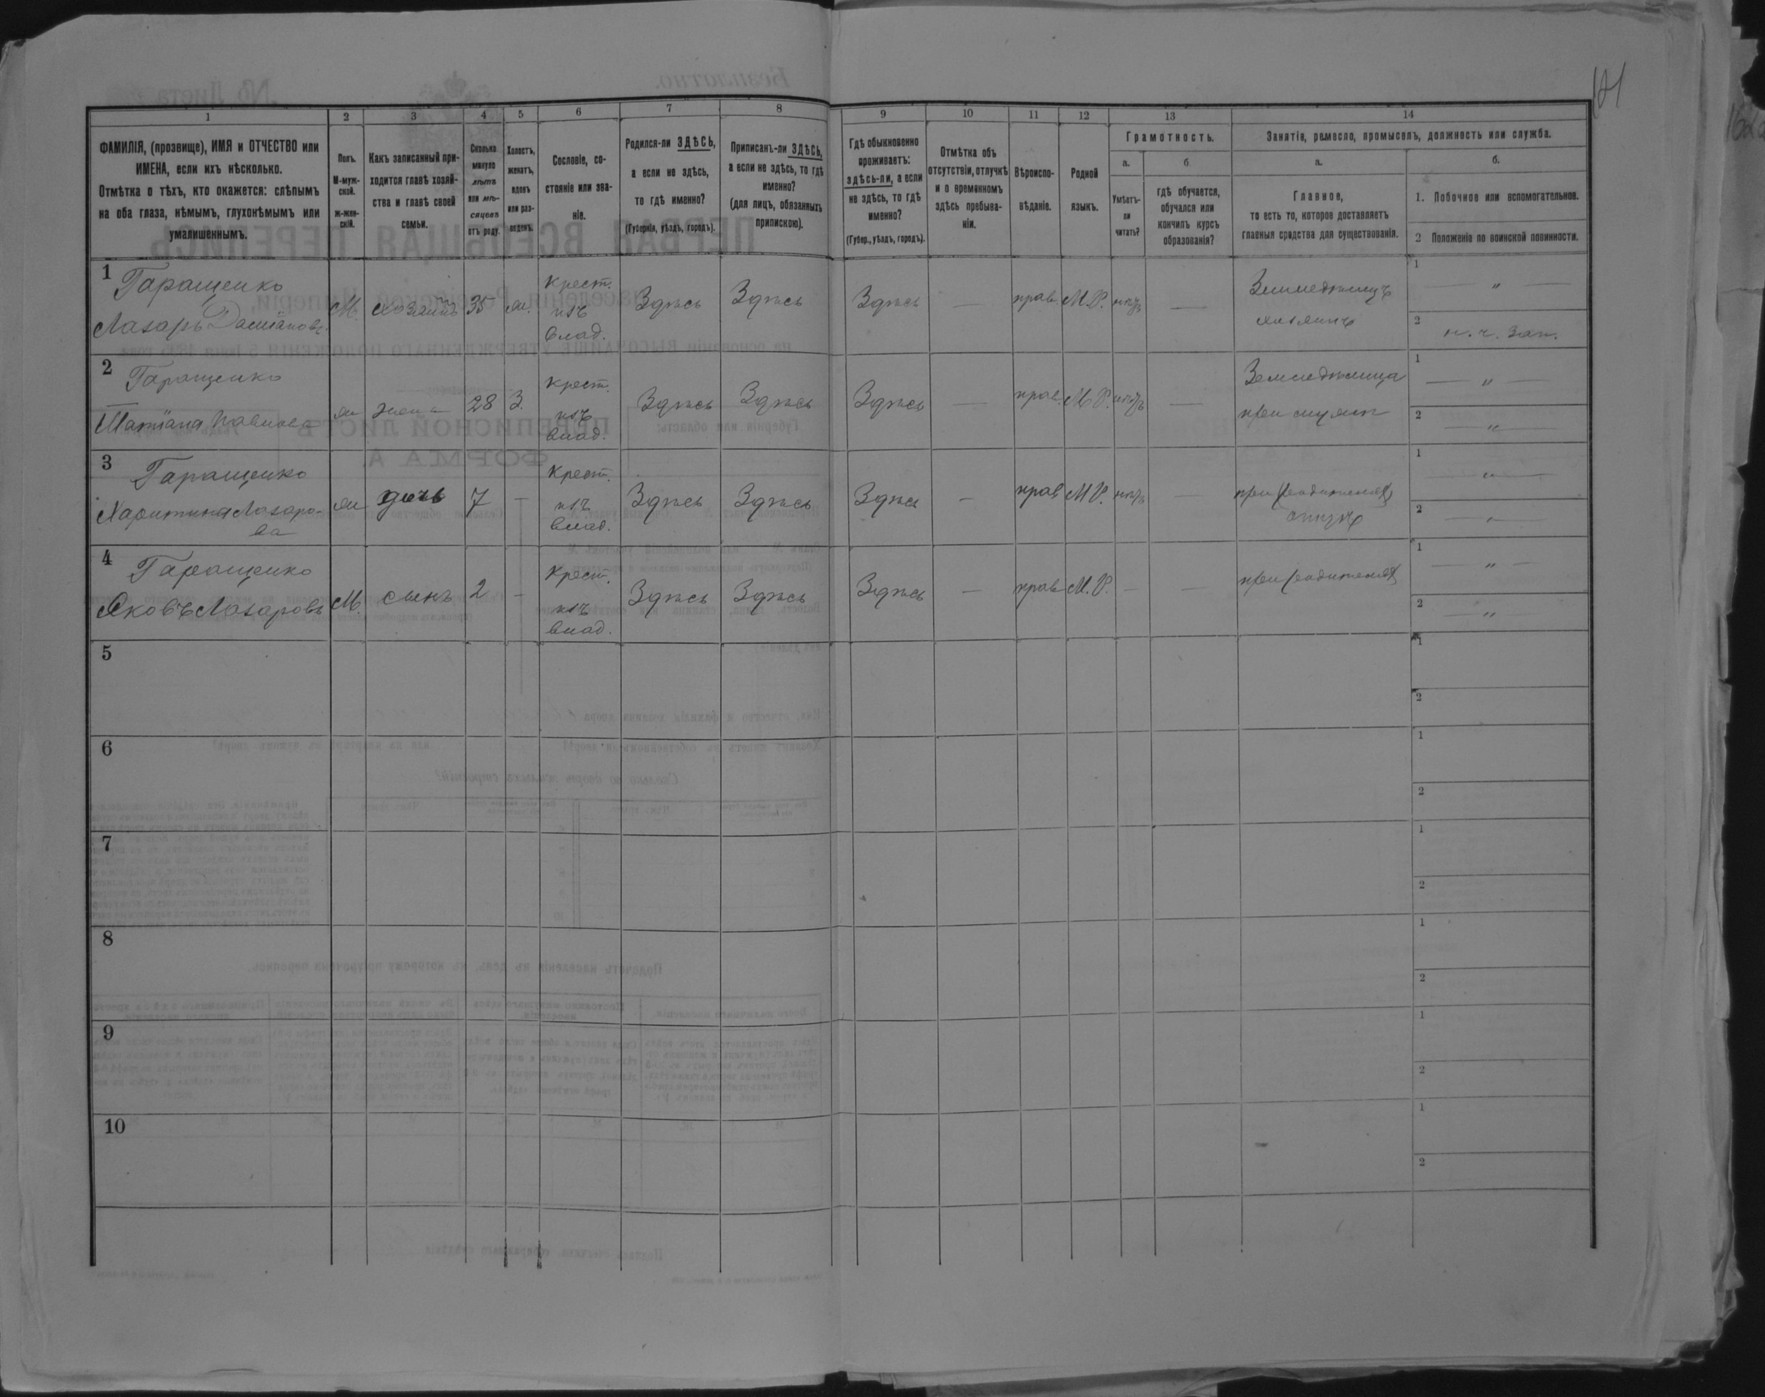 121
1 2 3 4 5 6 7 8 9 10 11 12 13 14
ФАМИЛІЯ, (прозвище), ИМЯ и ОТЧЕСТВО или
ИМЕНА, если ихъ нѣсколько.
Отмѣтка о тѣхъ, кто окажется: слѣпымъ
на оба глаза, нѣмымъ, глухонѣмымъ или
умалишеннымъ.
Полъ.
М-муж-
ской.
ж-жен-
скій.
Какъ записанный при-
ходится главѣ хозяй-
ства и главѣ своей
семьи.
Сколько
минуло
лѣтъ
или мѣ-
сяцевъ
отъ роду.
Холостъ,
женатъ,
вдовъ
или раз-
веденъ.
Сословіе, со-
стояніе или зва-
ніе.
Родился-ли ЗДѢСЬ,
а если не здѣсь,
то гдѣ именно?
(Губернія, уѣздъ, городъ).
Приписанъ-ли ЗДѢСЬ,
а если не здѣсь, то гдѣ
именно?
(для лицъ, обязанныхъ
припискою).
Гдѣ обыкновенно
проживаетъ:
здѣсь-ли, а если
не здѣсь, то гдѣ
именно?
(Губер., уѣздъ, городъ).
Отмѣтка объ
отсутствіи, отлучкѣ
и о временномъ
здѣсь пребыва-
ніи.
Вѣроиспо-
вѣданіе.
Родной
языкъ.
Грамотность.
а. б.
Умѣетъ-
ли
читать?
гдѣ обучается,
обучался или
кончилъ курсъ
образованія?
Занятіе, ремесло, промыселъ, должность или служба.
а. б.
Главное,
то есть то, которое доставляетъ
главныя средства для существованія.
1. Побочное или вспомогательное.
2 Положеніе по воинской повинности.
1 Гаращенко
Лазарь Даміановъ
М. хозяинъ 35 ж.
Крест.
изъ
влад.
Здѣсь Здѣсь Здѣсь — прав. М.Р. нѣтъ —
Земледѣлецъ
хозяинъ
1 — „ —
2 н. ч. Зап.
2 Гаращенко
Татіана Павлова
ж жена 28 З.
Крест.
изъ
влад.
Здѣсь Здѣсь Здѣсь — прав. М.Р. нѣтъ —
Земледѣлица
при мужѣ
1 — „ —
2 — „ —
3 Гаращенко
Харитина Лазаро-
ва
ж дочь 7 —
Крест.
изъ
влад.
Здѣсь Здѣсь Здѣсь — прав М.Р. нѣтъ —
при родителяхъ
1 — „ —
2 — „ —
4 Гаращенко
Яковъ Лазаровъ
М. сынъ 2 —
Крест.
изъ
влад.
Здѣсь Здѣсь Здѣсь — прав М.Р. — —
при родителяхъ
1 — „ —
2 — „ —
5
1
2
6
1
2
7
1
2
8
1
2
9
1
2
10
1
2